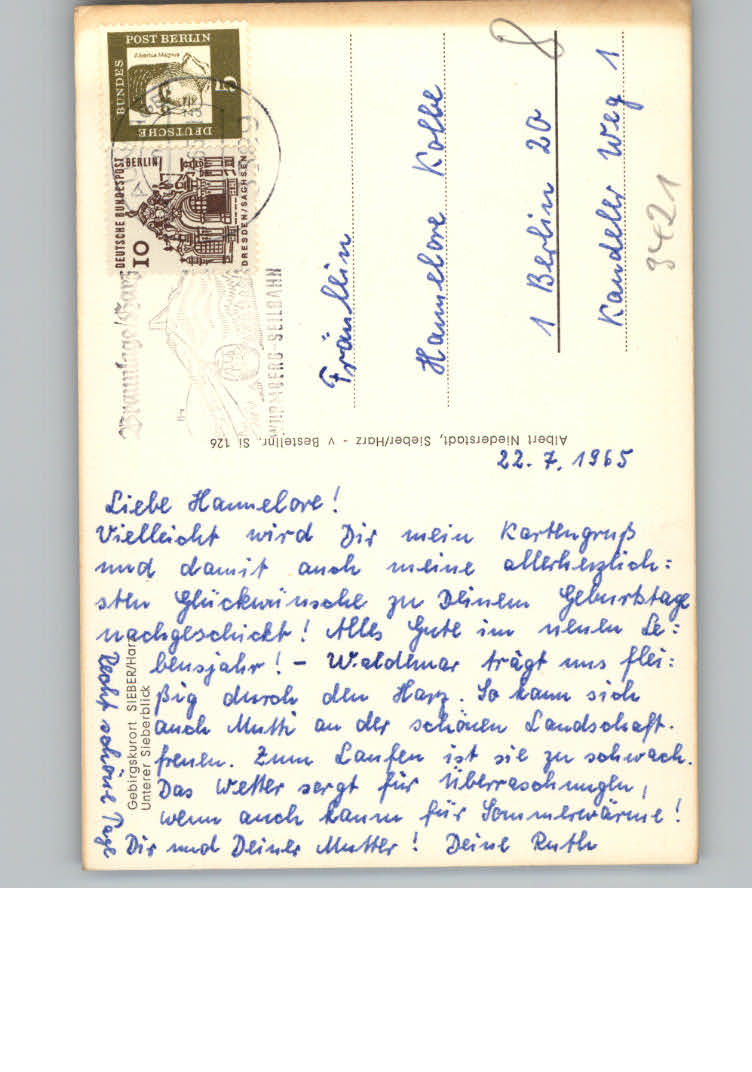 DEUTSCHE BUNDESPOST BERLIN
Albertus Magnus
5
DEUTSCHE BUNDESPOST BERLIN
10
DRESDEN/SACHSEN
Braunlage/Harz
WURMBERG-SEILBAHN
8
Fräulein
Hannelore Kolbe
1 Berlin 20
Kandeler Weg 1
3421
Albert Niederstadt, Sieber/Harz - v Bestellnr. Si 126
Gebirgskurort SIEBER/Harz
Unterer Sieberblick
22.7.1965
Liebe Hannelore!
Vielleicht wird Dir mein Kartengruß
und damit auch meine allerherzlich=
sten Glückwünsche zu Deinem Geburtstage
nachgeschickt! Alles Gute im neuen Le=
bensjahr! - Waldemar trägt uns flei=
ßig durch den Harz. So kann sich
auch Mutti an der schönen Landschaft
freuen. Zum Laufen ist sie zu schwach.
Das Wetter sorgt für Überraschungen,
wenn auch kaum für Sommerwärme!
Recht schöne Tage
Dir und Deiner Mutter! Deine Ruth